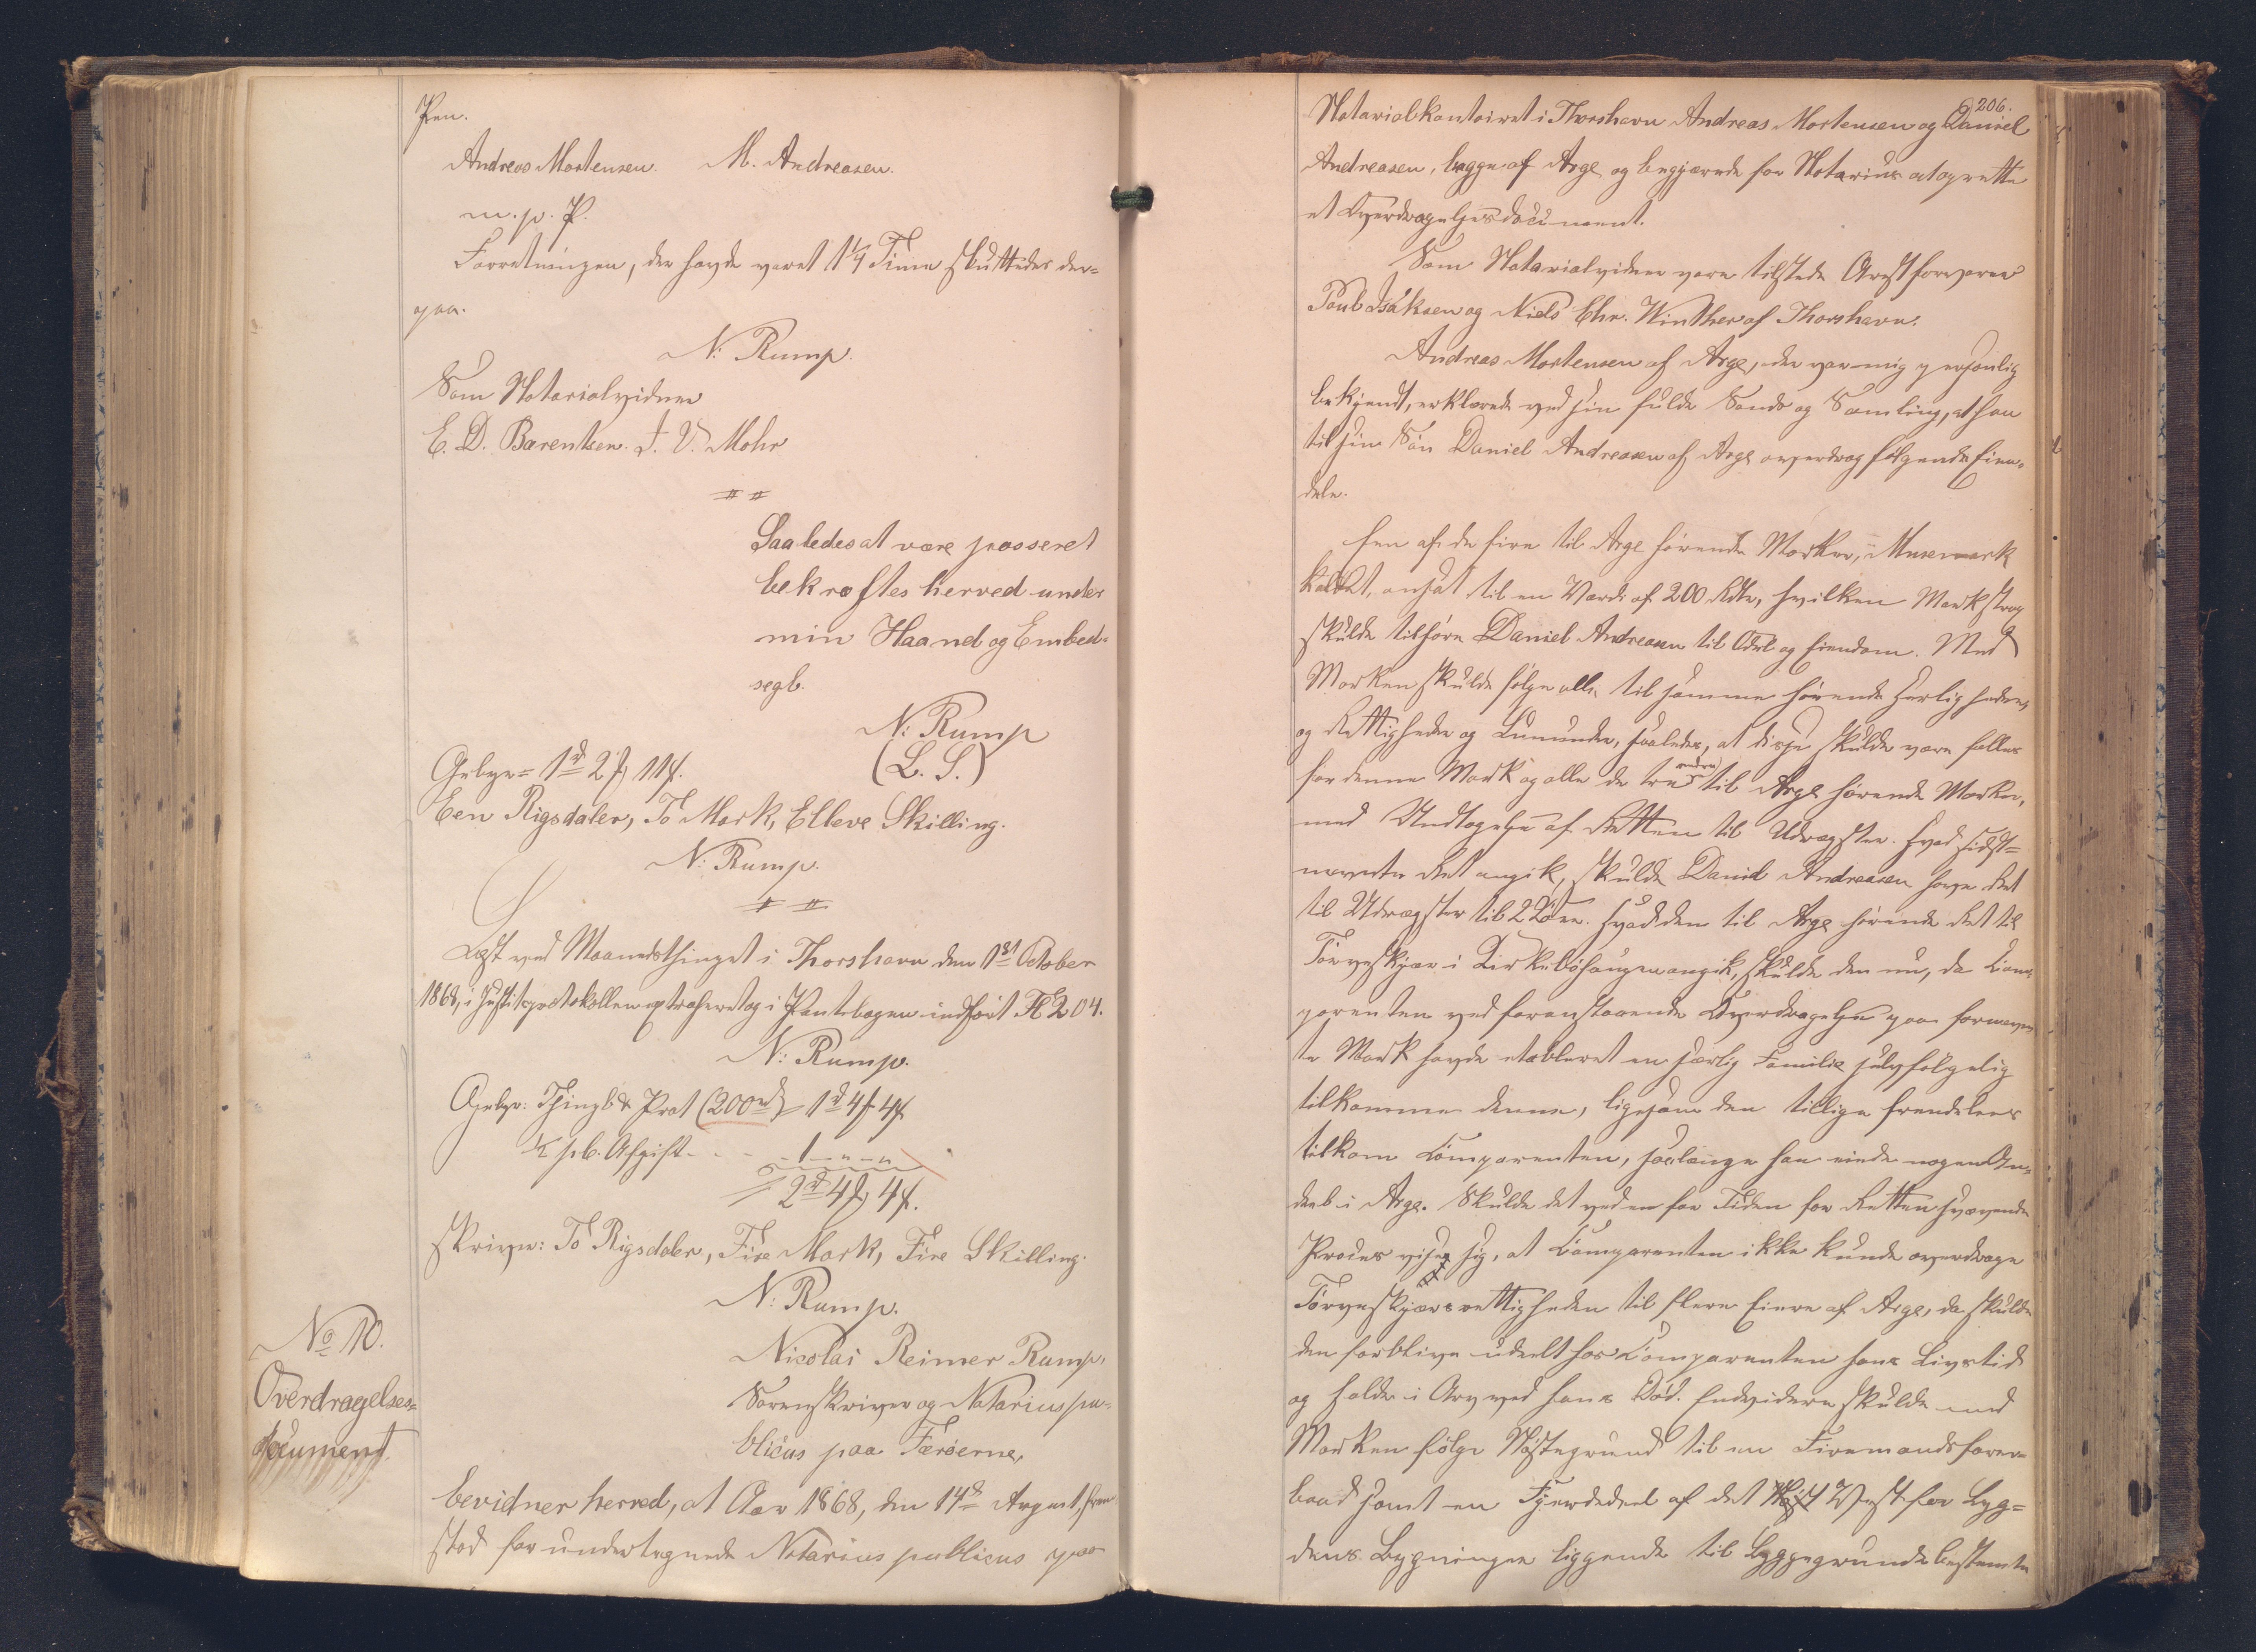 Pen.
Andreas Mortensen. M. Andreasen.
m. p. P.
Forretningen, der havde varet 1¼ Time sluttedes der=
paa.
N: Rump.
Som Notarialvidner
E. D. Barentsen. J. V. Mohr
〃 〃
Saaledes at være passeret
bekræftes herved under
min Haand og Embed=
segl.
N: Rump
(L. S.)
Gebyr = 1rd 2 ß 11 ß.
Een Rigsdaler, To Mark, Elleve Skilling.
N: Rump.
〃 〃
Læst ved Maanedsthinget i Thorshavn den 1ste October
1868, i Justitsprotokollen extraheret og i Pantebogen indført Fol 204.
N: Rump.
Gebyr: Thingl & Prot (200rd) = 1rd 4 ß 4 ß
½ pCt. Afgift - - - 1 - " - "
= 2rd 4 ß 4 ß.
skriver: To Rigsdaler, Fire Mark, Fire Skilling.
N: Rump.
No 10.
Overdragelses=
document.
Nicolai Reimer Rump,
Sorenskriver og Notarius pu=
blicus paa Færøerne,
bevidner herved, at Aar 1868, den 14de August, frem
stod for undertegnede Notarius publicus paa
206.
Notarialkontoiret i Thorshavn Andreas Mortensen og Daniel
Andreasen, begge af Arge og begjærede for Notarius at oprette
et Overdragelsesdocument.
Som Notarialvidner vare tilstede Arrestforvarer
Poul Isaksen og Niels Chr. Winther af Thorshavn.
Andreas Mortensen af Arge, der var mig personlig
bekjendt, erklærede ved sin fulde Sands og Samling, at han
til sin Søn Daniel Andreasen af Arge overdrog følgende Eien=
dele.
Een af de fire til Arge hørende Marker, Musemark
kaldet, ansat til en Værdi af 200 Rdlr, hvilken Markstrøg
skulde tilhøre Daniel Andreasen til Odel og Eiendom. Med
Marken skulde følge alle til samme hørende Herligheder,
og Rettigheder og Lunnunder, saaledes, at disse skulde være fælles
for denne Mark og alle de tre andre til Arge hørende Marker,
med Undtagelse af Retten til Udrøgster. Hvad sidst=
nævnte Ret angik, skulde Daniel Andreasen have Ret
til Udrøgster til 2 Køer. Hvad den til Arge hørende Ret til
Tørveskjær i Kirkebøhaugen angik, skulde den nu, da Com=
parenten ved foranstaaende Overdragelse paa formeven
te Mark havde etableret en særlig Familie selvfølgelig
tilkomme denne, ligesom den tillige fremdeles
tilkom Comparenten, saalænge han eiede nogen An=
deel i Arge. Skulde det ved en for Tiden for Retten svævende
Proces vise sig, at Comparenten ikke kunde overdrage
Tørveskjærsrettigheden til flere Eiere af Arge, da skulde
den forblive udeelt hos Comparenten hans Livstid
og falde i Arv ved hans Død. Endvidere skulde med
Marken følge Nøstegrund til en Firemandsfarer=
baad samt en Fjerdedeel af det Vest for Byg=
dens Bygninger liggende til Byggegrunde bestemte